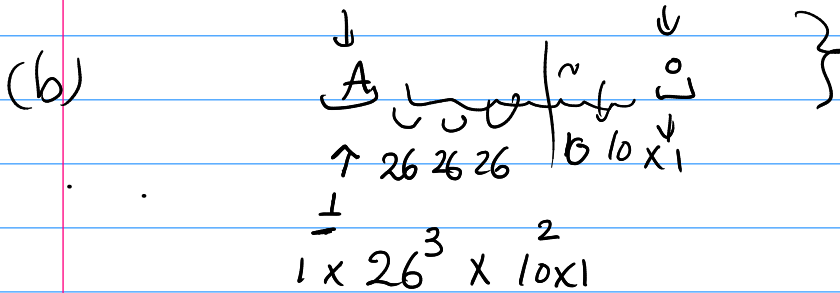 (b) A 0 }
1 26 26 26 10 10 x 1
1 x 26^3 x 10^2 x1